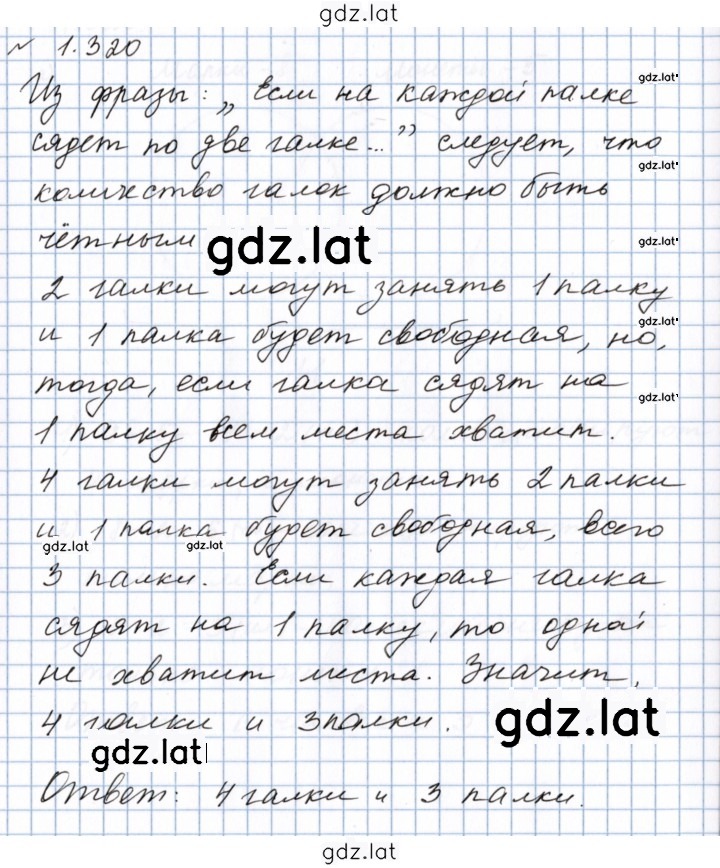 gdz.lat
№ 1.320
gdz.lat
Из фразы: „Если на каждой палке
gdz.lat
сядет по две галке...” следует, что
gdz.lat
количество галок должно быть
чётным gdz.lat
gdz.lat
2 галки могут занять 1 палку
gdz.lat
и 1 палка будет свободная, но,
тогда, если галка сядят на
gdz.lat
1 палку всем места хватит.
4 галки могут занять 2 палки
и 1 палка будет свободная, всего
gdz.lat gdz.lat
3 палки. Если каждая галка
сядят на 1 палку, то одной
не хватит места. Значит,
4 галки и 3 палки. gdz.lat
gdz.lat
Ответ: 4 галки и 3 палки.
gdz.lat